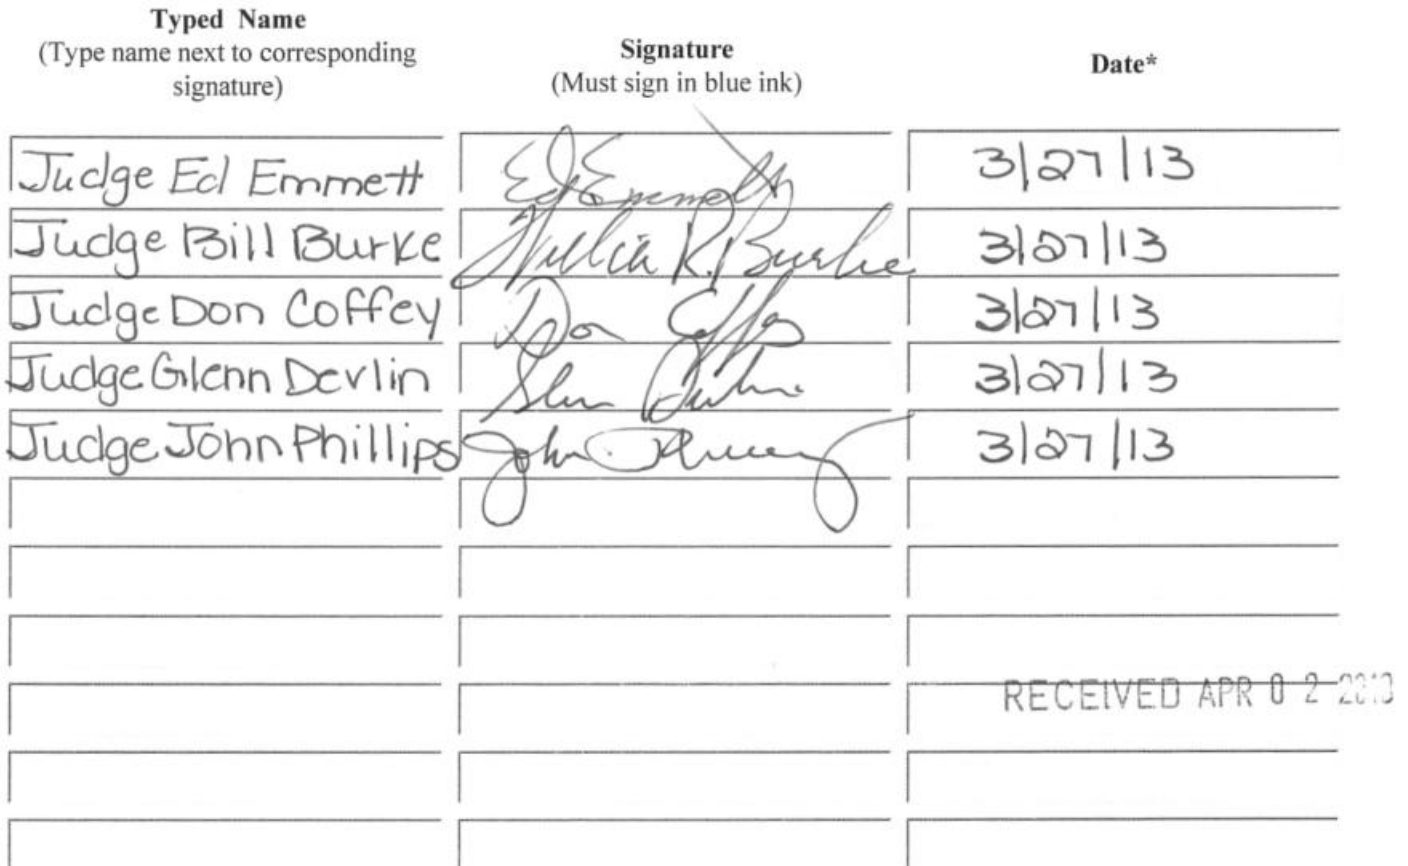 Typed Name
(Type name next to corresponding
signature)
Signature
(Must sign in blue ink)
Date*
Judge Ed Emmett Ed Emmett 3/27/13
Judge Bill Burke William R. Burke 3/27/13
Judge Don Coffey Don Coffey 3/27/13
Judge Glenn Devlin Glenn Devlin 3/27/13
Judge John Phillips John 3/27/13
RECEIVED APR 0 2 2013